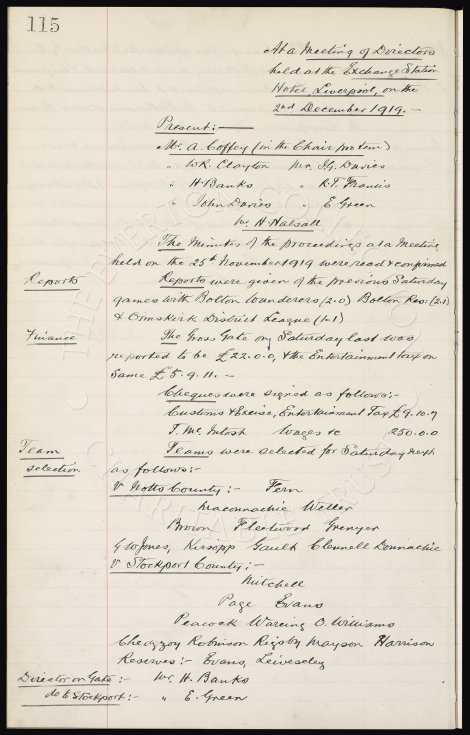 115
At a Meeting of Directors
held at the Exchange Station
Hotel, Liverpool, on the
2nd December 1919. —
Present: —
Mr. A. Coffey (in the Chair pro tem)
" W.R. Clayton Mr. J.G. Davies
" H. Banks " R.T. Francis
" John Davies " E. Green
Mr. H. Halsall
The Minutes of the proceedings at a Meeting
held on the 25th November 1919 were read & confirmed
Reports
Reports were given of the previous Saturday
games with Bolton Wanderers (2.0) Bolton Res: (2.1)
& Ormskirk District League (1-1)
Finance
The Gross Gate on Saturday last was
reported to be £22.0.0, & the Entertainment tax on
same £5.9.11. —
Cheques were signed as follows:-
Customs & Excise, Entertainment Tax £9.10.7
T. McIntosh Wages &c 250.0.0
Team
selection
Teams were selected for Saturday next
as follows:-
V Notts County:- Fern
Maconnachie Weller
Brown Fleetwood Grenyer
G W Jones, Kirsopp Gault Clennell Donnachie
V Stockport County:-
Mitchell
Page Evans
Peacock Wareing O. Williams
Chedgzoy Robinson Rigsby Mayson Harrison
Reserves:- Evans, Leivesley
Director on Gate:- Mr. H. Banks
do to Stockport:- " E. Green